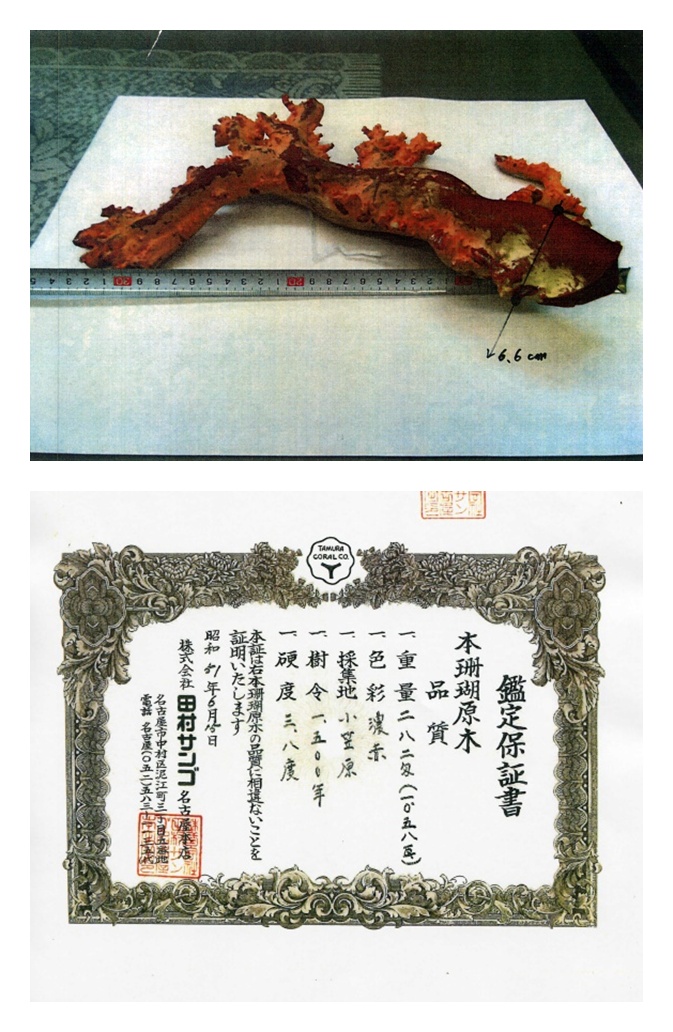 6.6 cm
TAMURA
CORAL CO.
鑑定保証書
本珊瑚原木
品質
一、重量 二八二匁(一〇五八瓦)
一、色彩 濃赤
一、採集地 小笠原
一、樹令 一、五〇〇年
一、硬度 三、八度
本証は右本珊瑚原木の品質に相違ないことを
証明いたします
昭和51年6月 日
株式会社 田村サンゴ 名古屋本店
名古屋市中村区泥江町三丁目五番地
電話 名古屋(〇五二)五八三